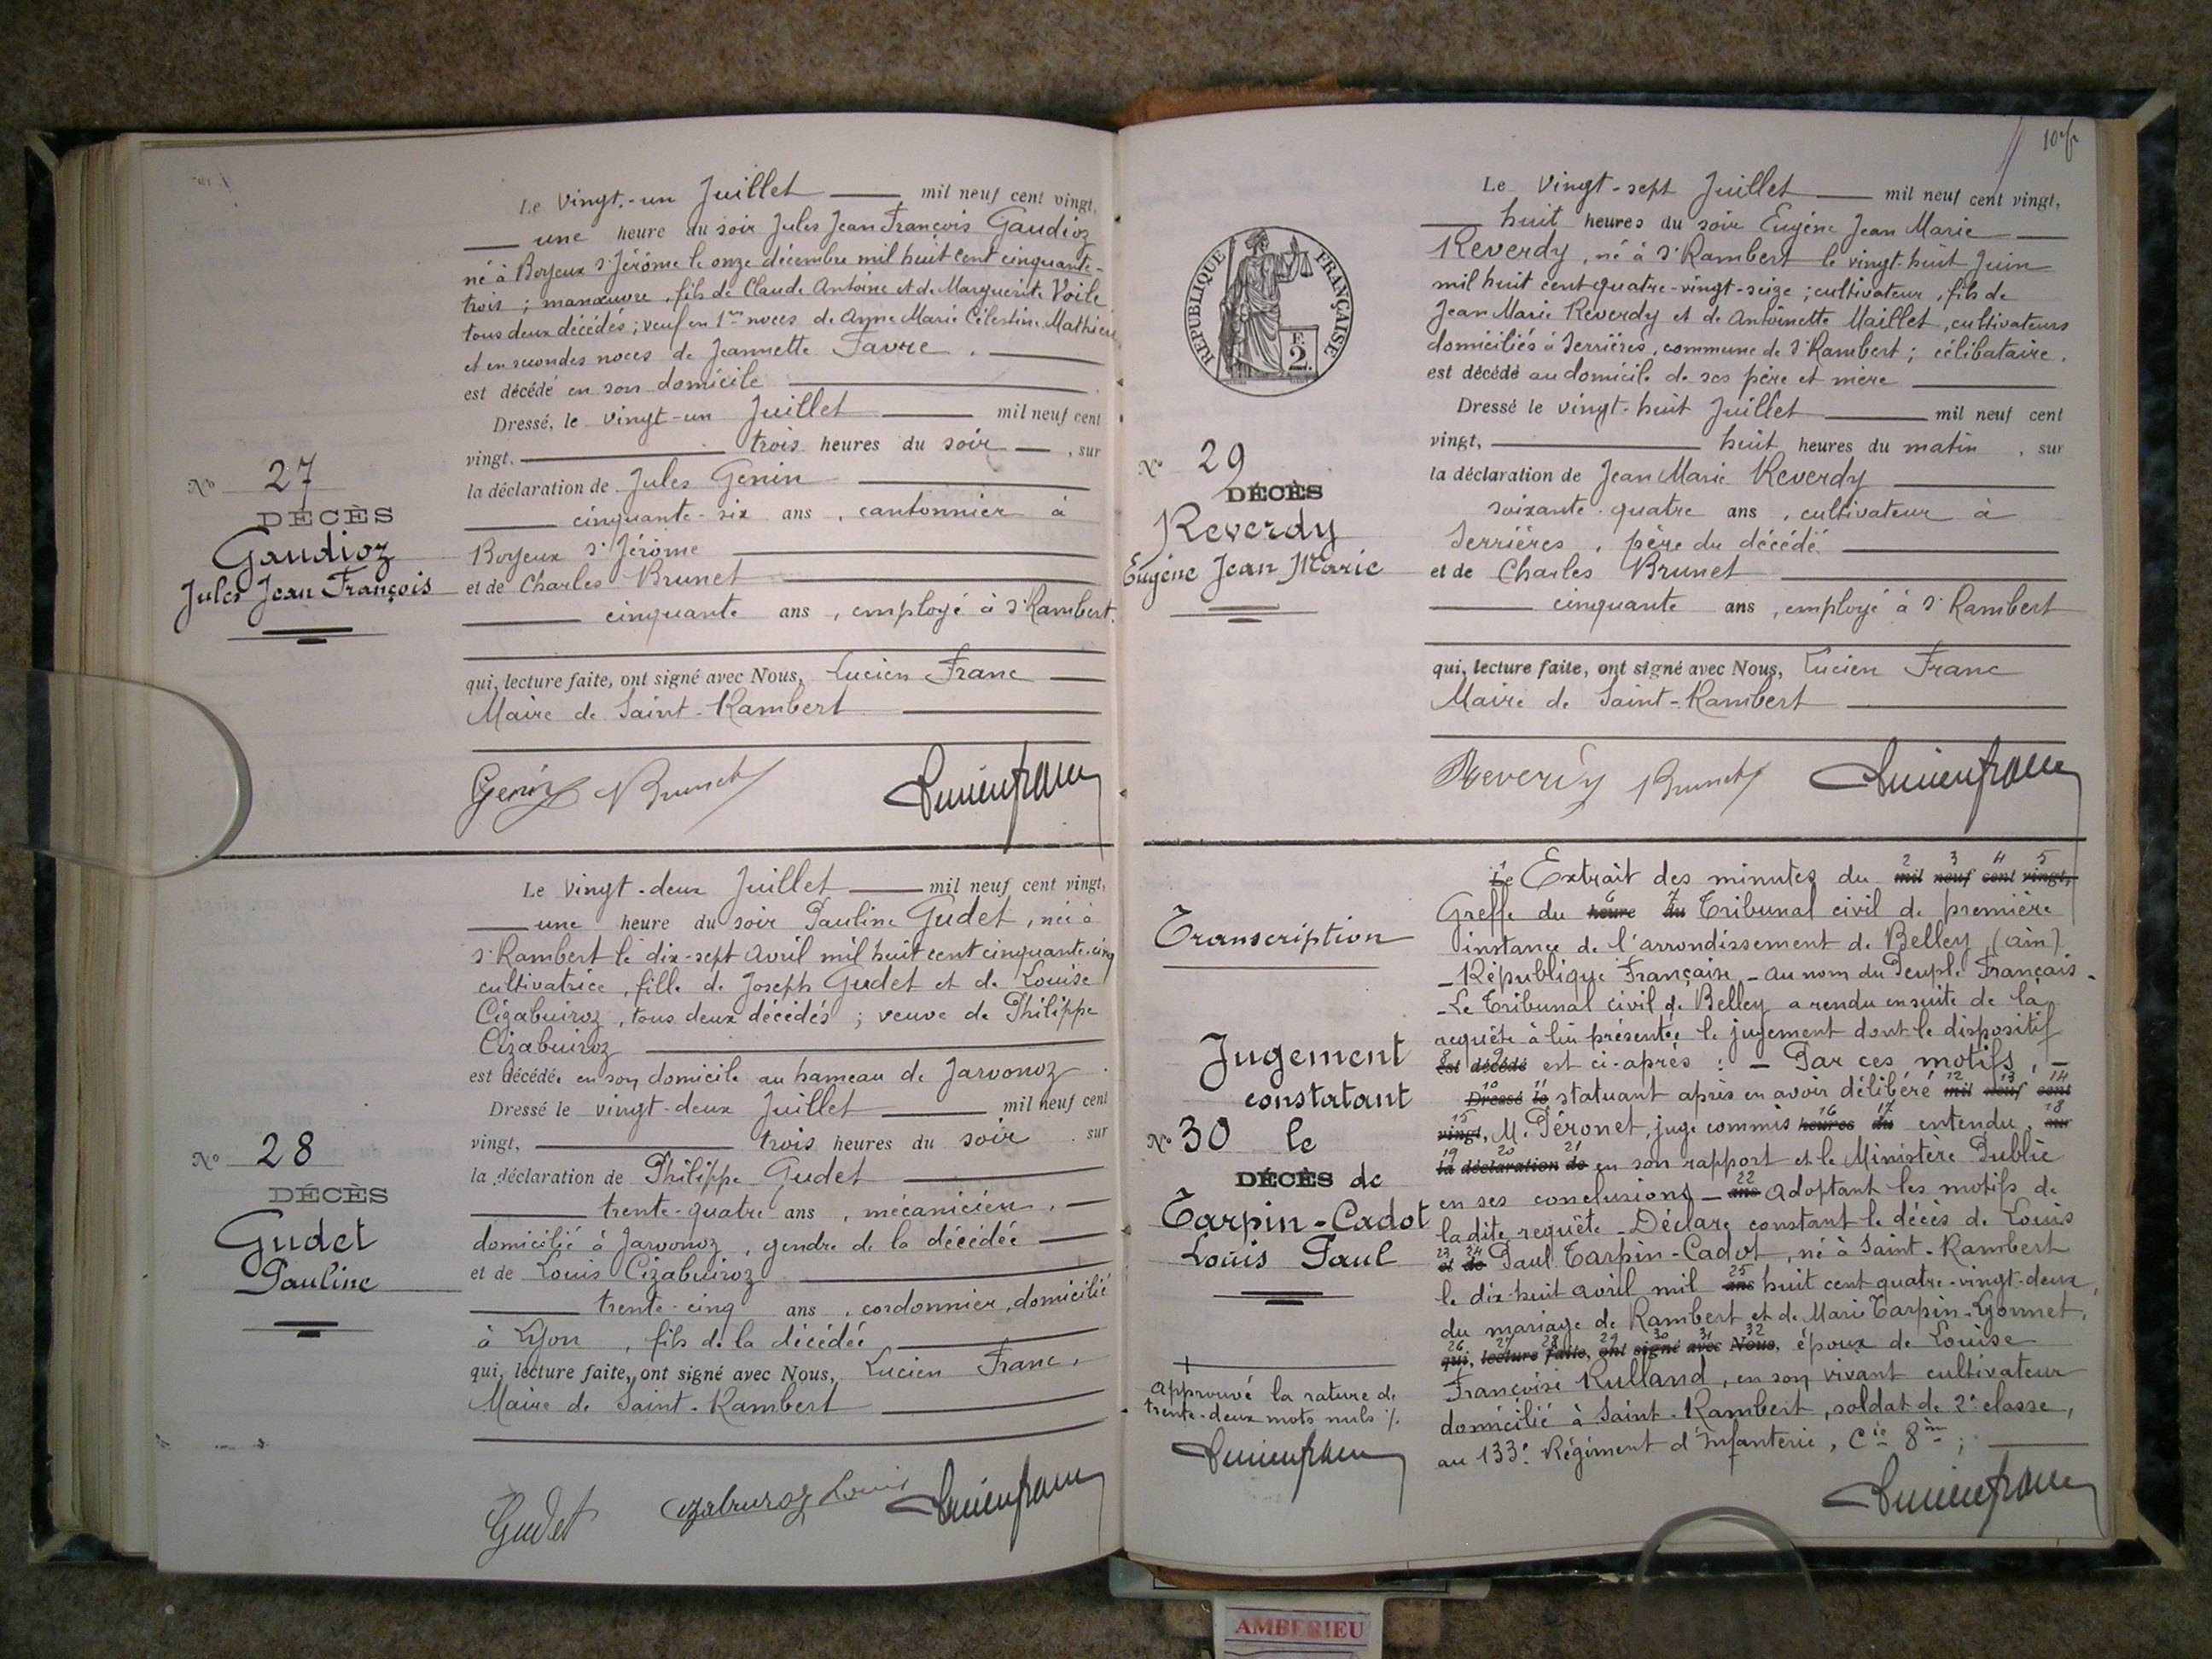 Le vingt-un Juillet mil neuf cent vingt,
une heure du soir Jules Jean François Gaudioz
né à Boyeux St Jérôme le onze décembre mil huit cent cinquante-
trois ; manœuvre, fils de Claude Antoine et de Marguerite Voile
tous deux décédés ; veuf en 1res noces de Anne Marie Célestine Mathieu
et en secondes noces de Jeannette Favre.
est décédé en son domicile
Dressé, le vingt-un Juillet mil neuf cent
vingt, trois heures du soir, sur
la déclaration de Jules Genin
cinquante-six ans, cantonnier à
Boyeux St Jérôme
et de Charles Brunet
cinquante ans, employé à St Rambert.
qui, lecture faite, ont signé avec Nous, Lucien Franc
Maire de Saint-Rambert
Genin Brunet Lucien franc
No 27
DÉCÈS
Gaudioz
Jules Jean François
Le vingt-deux Juillet mil neuf cent vingt,
une heure du soir Pauline Gudet, née à
St Rambert le dix-sept avril mil huit cent cinquante-cinq
cultivatrice, fille de Joseph Gudet et de Louise
Cizabuiroz, tous deux décédés ; veuve de Philippe
Cizabuiroz
est décédée en son domicile au hameau de Javonoz.
Dressé le vingt-deux Juillet mil neuf cent
vingt, trois heures du soir, sur
la déclaration de Philippe Gudet
trente-quatre ans, mécanicien,
domicilié à Javonoz, gendre de la décédée
et de Louis Cizabuiroz
trente-cinq ans, cordonnier, domicilié
à Lyon, fils de la décédée
qui, lecture faite, ont signé avec Nous, Lucien Franc,
Maire de Saint-Rambert
Gudet Cizabuiroz Louis Lucien franc
No 28
DÉCÈS
Gudet
Pauline
Le vingt-sept Juillet mil neuf cent vingt,
huit heures du soir Eugène Jean Marie
Reverdy, né à St Rambert le vingt-huit Juin
mil huit cent quatre-vingt-seize ; cultivateur, fils de
Jean Marie Reverdy et de Antoinette Maillet, cultivateurs
domiciliés à Serrières, commune de St Rambert ; célibataire.
est décédé au domicile de ses père et mère
Dressé le vingt-huit Juillet mil neuf cent
vingt, huit heures du matin, sur
la déclaration de Jean Marie Reverdy
soixante-quatre ans, cultivateur à
Serrières, père du décédé
et de Charles Brunet
cinquante ans, employé à St Rambert
qui, lecture faite, ont signé avec Nous, Lucien Franc
Maire de Saint-Rambert
Reverdy Brunet Lucien franc
RÉPUBLIQUE FRANÇAISE
F.
2.
No 29
DÉCÈS
Reverdy
Eugène Jean Marie
1 2 3 4 5
Le Extrait des minutes du mil neuf cent vingt,
6 7
Greffe du heure du Tribunal civil de première
instance de l'arrondissement de Belley (ain)
- République Française - au nom du Peuple Français -
- Le Tribunal civil de Belley a rendu ensuite de la
requête à lui présentée le jugement dont le dispositif
8 9
est décédé est ci-après : - Par ces motifs, -
10 11 12 13 14
Dressé le statuant après en avoir délibéré mil neuf cent
15 16 17 18
vingt, M. Péronet, juge commis heures du entendu, sur
19 20 21
la déclaration de en son rapport et le Ministère Public
22
en ses conclusions - ans adoptant les motifs de
la dite requête - Déclare constant le décès de Louis
23 24
et de Paul Tarpin-Cadot, né à Saint-Rambert
25
le dix-huit avril mil ans huit cent quatre-vingt-deux,
du mariage de Rambert et de Marie Tarpin-Gonnet,
26 27 28 29 30 31 32
qui, lecture faite, ont signé avec Nous, époux de Louise
Françoise Rulland, en son vivant cultivateur
domicilié à Saint-Rambert, soldat de 2e classe,
au 133e Régiment d'Infanterie, Cie 8me ;
Lucien franc
Transcription
Jugement
constatant
No 30 le
DÉCÈS de
Tarpin-Cadot
Louis Paul
approuvé la rature de
trente-deux mots nuls
Lucien franc
AMBERIEU